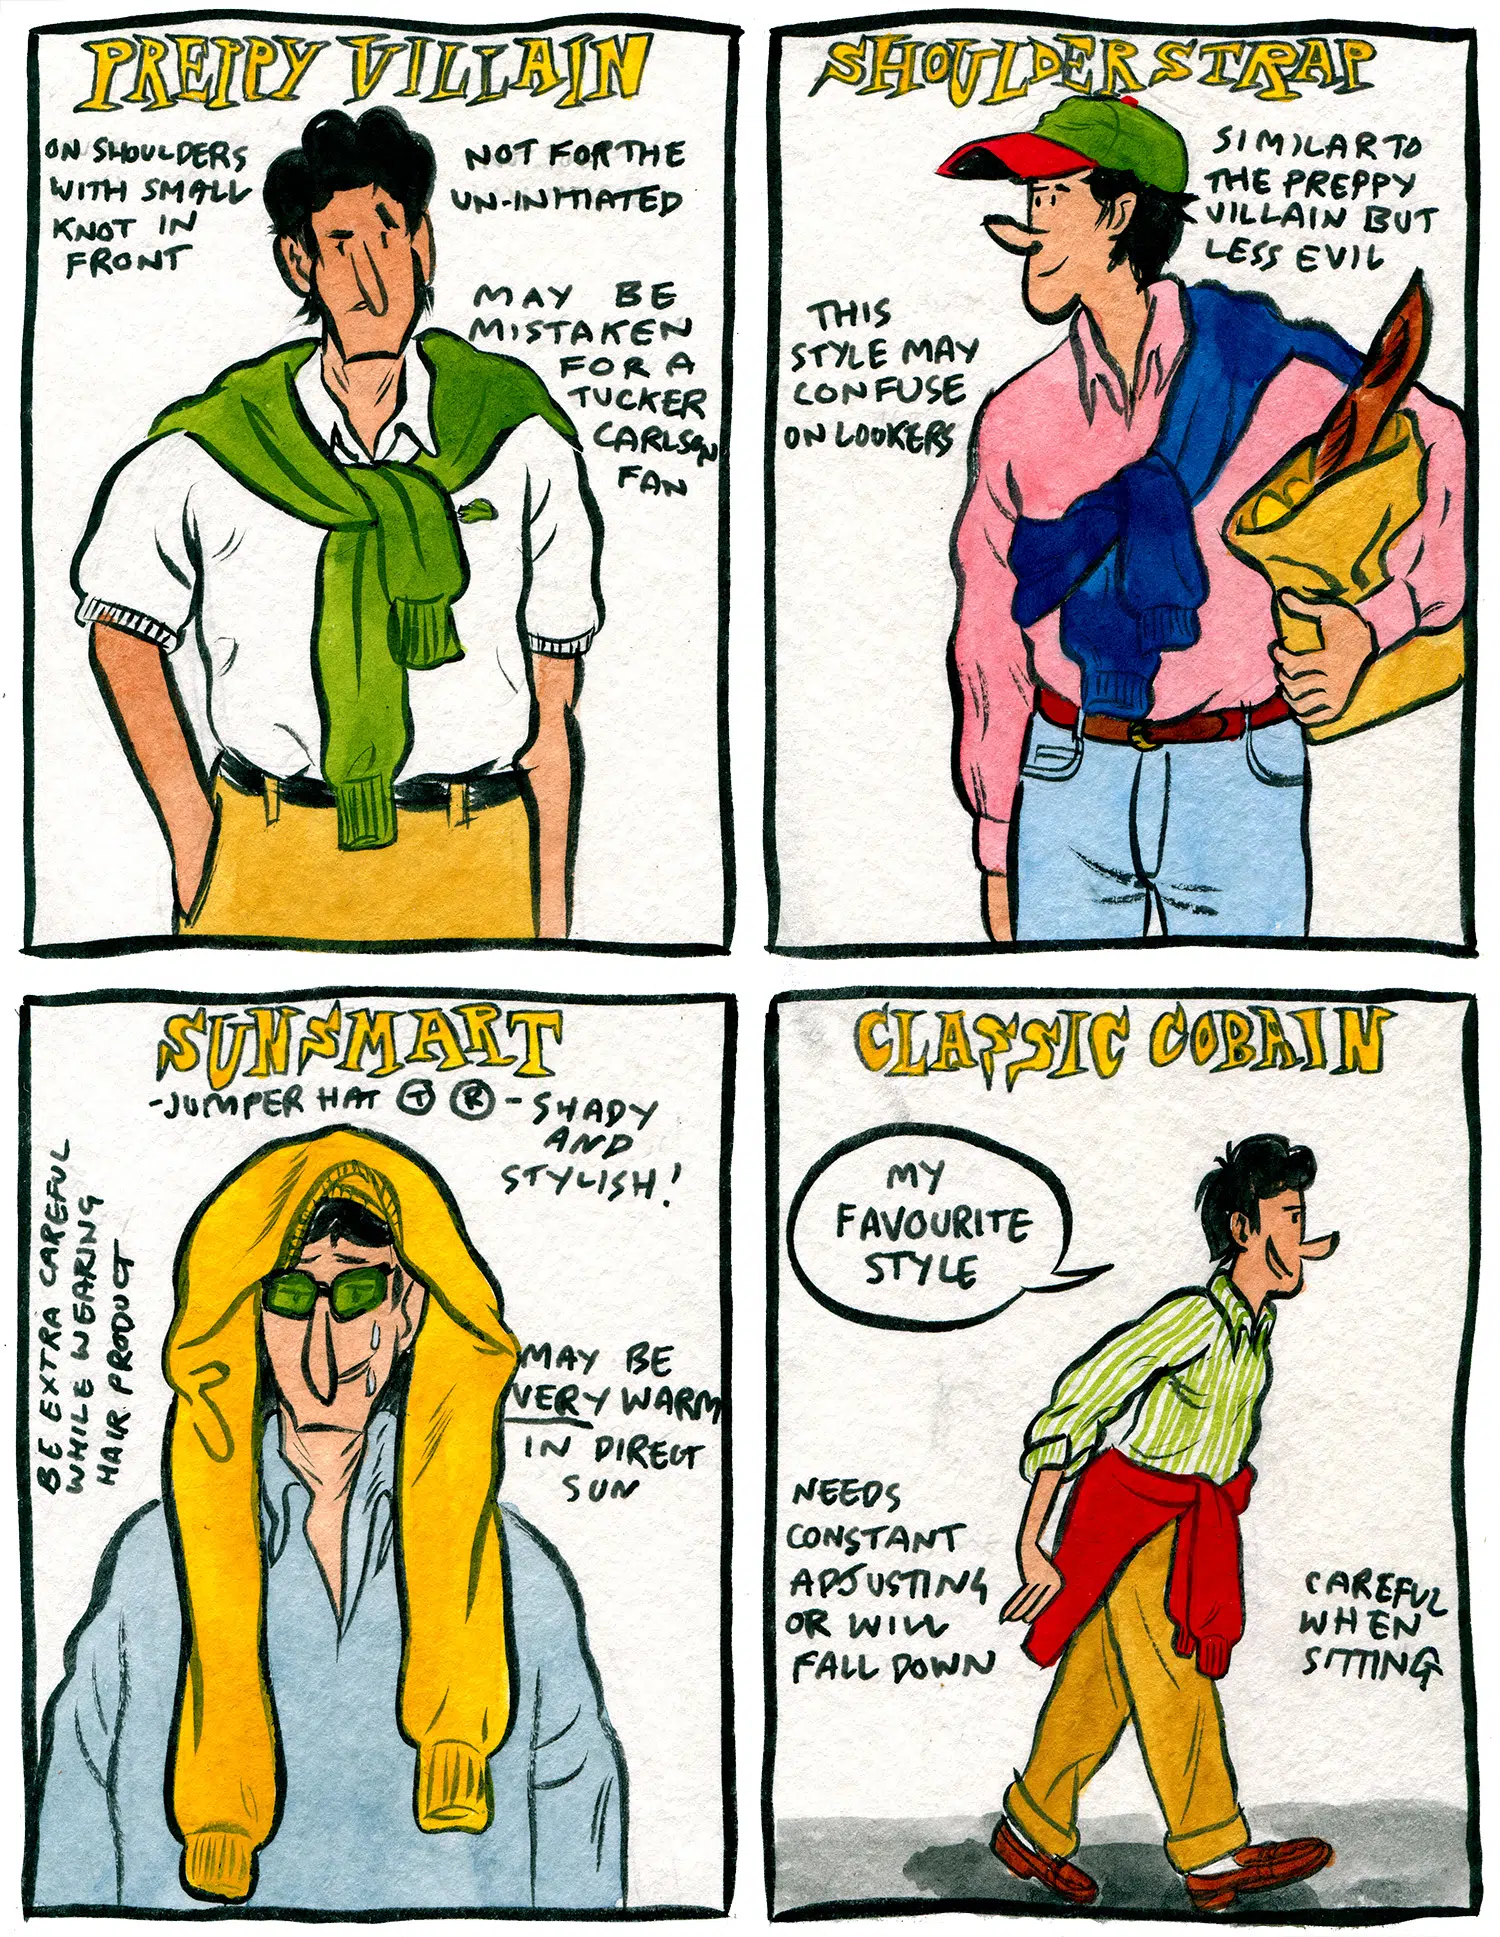 PREPPY VILLAIN
ON SHOULDERS
WITH SMALL
KNOT IN
FRONT
NOT FOR THE
UN-INITIATED
MAY BE
MISTAKEN
FOR A
TUCKER
CARLSON
FAN
SHOULDER STRAP
SIMILAR TO
THE PREPPY
VILLAIN BUT
LESS EVIL
THIS
STYLE MAY
CONFUSE
ON LOOKERS
SUNSMART
-JUMPER HAT Ⓣ Ⓡ-
SHADY
AND
STYLISH!
BE EXTRA CAREFUL
WHILE WEARING
HAIR PRODUCT
MAY BE
VERY WARM
IN DIRECT
SUN
CLASSIC COBAIN
MY
FAVOURITE
STYLE
NEEDS
CONSTANT
ADJUSTING
OR WILL
FALL DOWN
CAREFUL
WHEN
SITTING